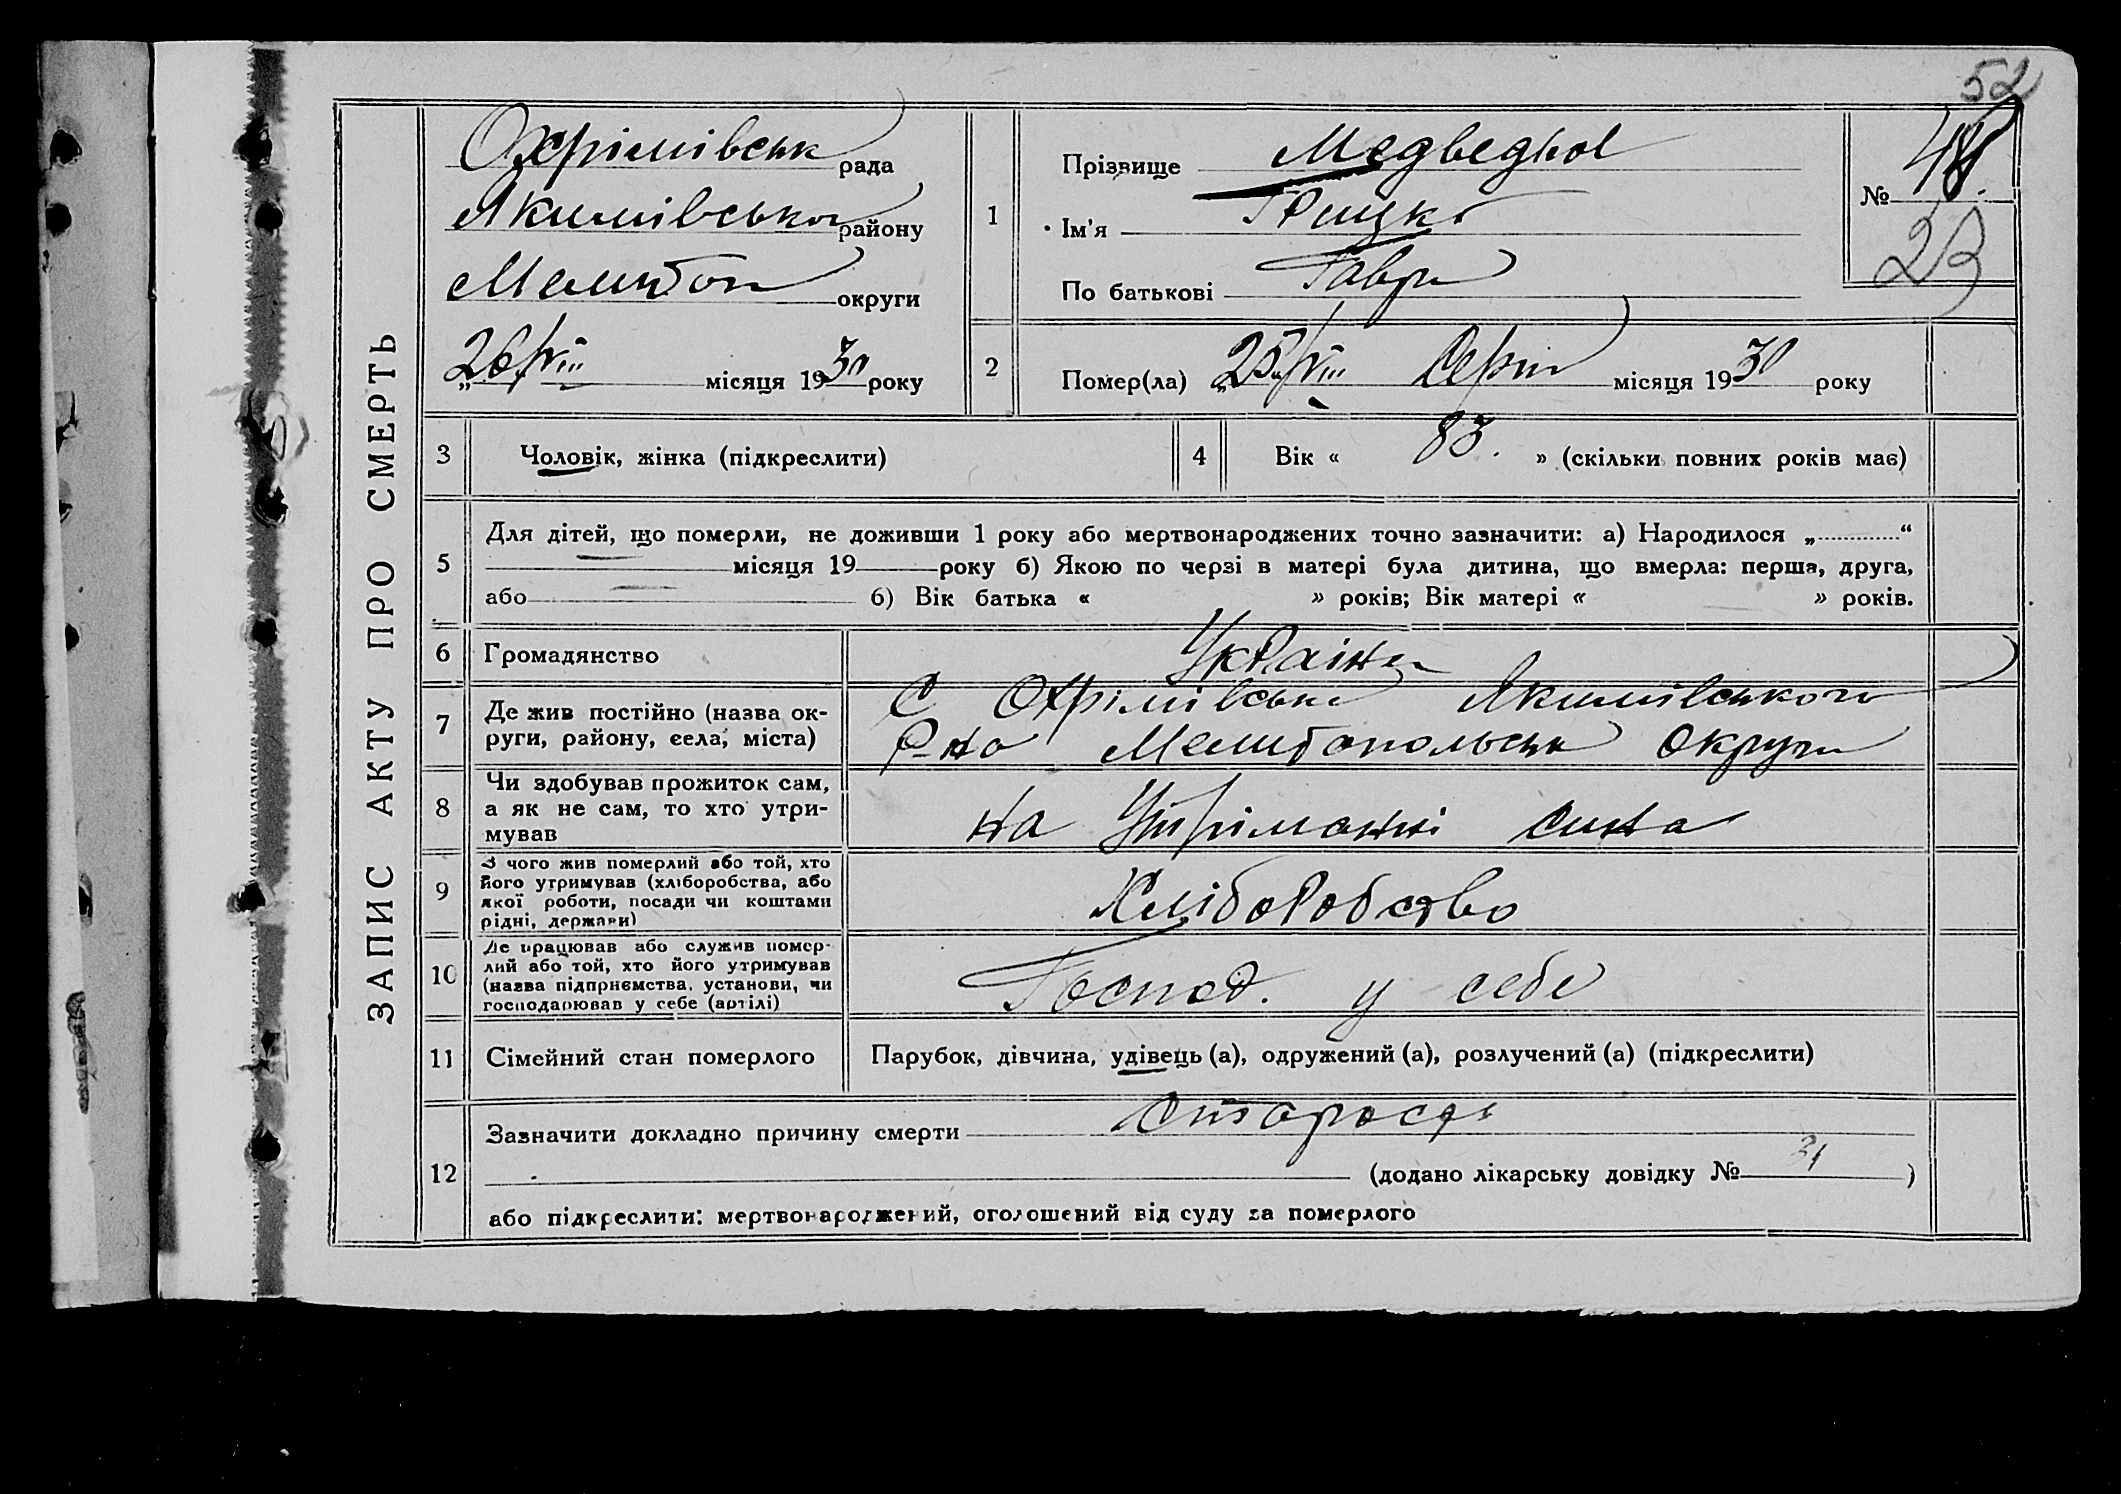 52
ЗАПИС АКТУ ПРО СМЕРТЬ
Охрімівськ рада
Якимівського району
Мелитоп округи
„26/VIII місяця 1930 року
1
Прізвище Медведьов
Ім'я Грицко
По батькові Гаври
№ 48.
23
2
Помер(ла) „25/VIII Серпн місяця 1930 року
3
Чоловік, жінка (підкреслити)
4
Вік « 83. » (скільки повних років має)
5
Для дітей, що померли, не доживши 1 року або мертвонароджених точно зазначити: а) Народилося „ “
місяця 19 року б) Якою по черзі в матері була дитина, що вмерла: перша, друга,
або б) Вік батька « » років; Вік матері « » років.
6
Громадянство
Україн
7
Де жив постійно (назва ок-
руги, району, села, міста)
С Охрімівське Якимівського
Р-на Мелитопольськ Округи
8
Чи здобував прожиток сам,
а як не сам, то хто утри-
мував
на Утріманні сина
9
З чого жив померлий або той, хто
його утримував (хліборобства, або
якої роботи, посади чи коштами
рідні, держави)
Хліборобство
10
Де працював або служив помер-
лий або той, хто його утримував
(назва підприємства, установи, чи
господарював у себе (артілі)
Господ. у себе
11
Сімейний стан померлого
Парубок, дівчина, удівець (а), одружений (а), розлучений (а) (підкреслити)
12
Зазначити докладно причину смерти Старость
(додано лікарську довідку № 21 )
або підкреслити: мертвонароджений, оголошений від суду за померлого